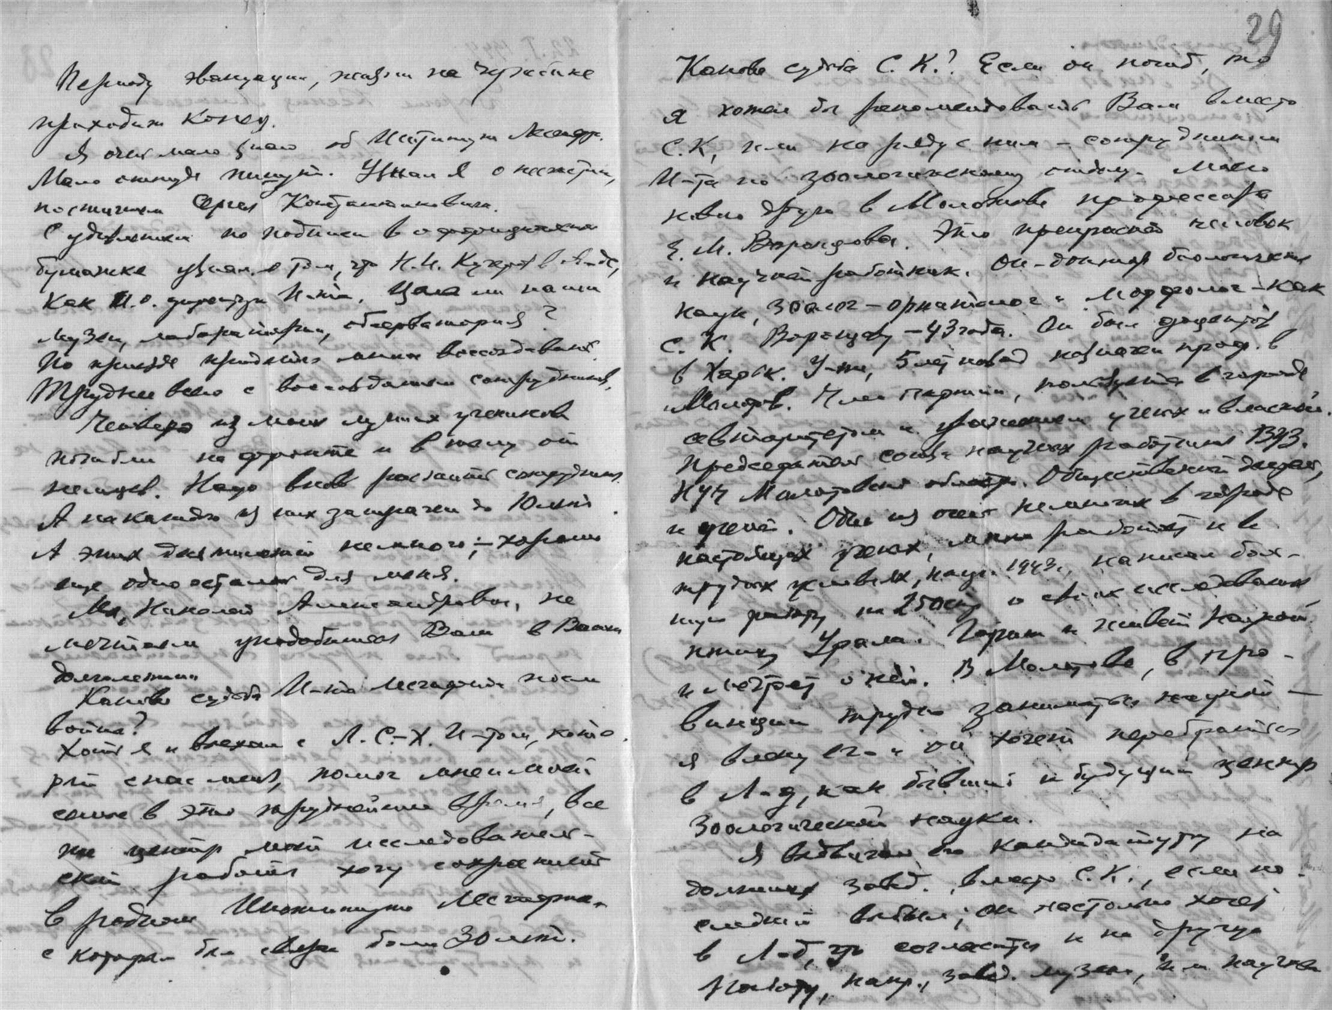 Периоду эвакуации, жизни на чужбине
приходит конец.
Я очень мало знаю об Институте Лесгафт.
Мало откуда пишут. Узнал я о несчастии,
постигшем Сергея Константиновича.
С удивлением по подписи в официальной
бумажке узнал о том, что Н.И.
как И.О. директора И-та. Цела ли наши
музеи, лаборатории, обсерватория?
По приезде придется много воссоздавать.
Труднее всего с воссозданием сотрудников.
Четверо из моих лучших учеников
погибли на фронте и в тылу от
немцев. Надо вновь растить сотрудников.
А на каждого из них затрачен до 10 лет.
А этих десятилетий немного, – хорошо
еще одно осталось для меня.
Мы, Николай Александрович, не
мечтаем уподобиться Вам в Вашем
долголетии.
Какова судьба И-та Лесгафта после
войны?
Хотя я и выехал с Л.С.-Х. И-том, кото-
рый спас меня, помог мне и моей
семье в это труднейшее время, все
же центр моей исследователь-
ской работы хочу сохранить
в родном Институте Лесгафта,
с которым был связан более 30 лет.
29
Какова судьба С.К.? Если он погиб, то
я хотел бы рекомендовать Вам вместо
С.К, или наряду с ним – сотрудником
И-та по зоологическому отделу. Моего
нового друга в Молотове профессора
Е.М. Воронцова. Это прекрасный человек
и научный работник. Он – доктор биологических
наук, зоолог – орнитолог и морфолог – как
С.К. Воронцову – 43 года. Он был доцентом
в Харьк. У-те, 5 лет назад назначен проф. в
Молотов. Член партии, пользуется в городе
авторитетом и уважением ученых и властей.
Председатель союза научных работников ВУЗ.
НУЧ Молотовской области. Общественный деятель,
и ученый. Один из очень немногих в городе
настоящих ученых, много работает и в
трудных условиях, напр. 1943г. написал боль-
шую работу на 250 стр о своих исследованиях
птиц Урала. Горит и живет Наукой
и смотрит о ней. В Молотове, в про-
винции трудно заниматься наукой —
я влеку его и он хочет перебраться
в Л-д, как бывший и будущий центр
Зоологической науки.
Я выдвигаю его кандидатуру на
должность завед. вместо С.К., если по-
следний выбыл; он настолько хочет
в Л-д, что согласится и на другую
работу, напр., завед. музеем, или научным